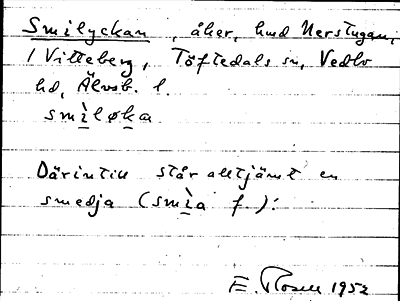 Smilyckan, åker, hmd Nerstugan,
/ Vitteberg, Töftedals sn, Vedbo
hd, Älvsb. l.
smìløka
Därintill står alltjämt en
smedja (smìa f.):
E. Rosen 1952